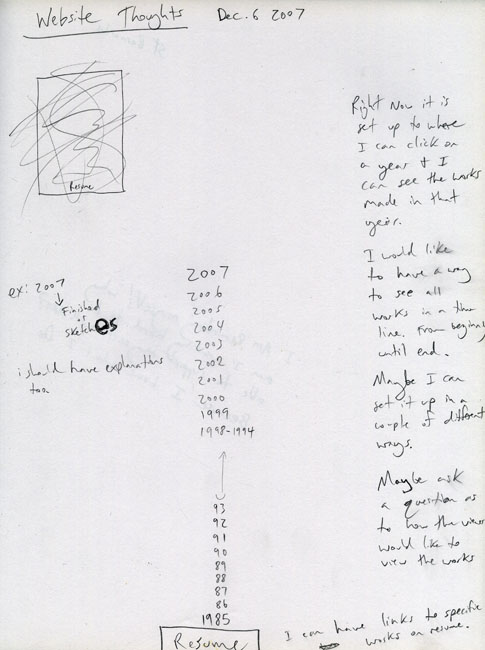 Website Thoughts Dec. 6 2007
Resume
Right Now it is
set up to where
I can click on
a year & I
can see the works
made in that
year.
I would like
to have a way
to see all
works in a time
line. From beginning
until end.
Maybe I can
set it up in a
couple of different
ways.
Maybe ask
a question as
to how the viewer
would like to
view the works
ex: 2007
Finished
or
sketches
i should have explanations
too.
2007
2006
2005
2004
2003
2002
2001
2000
1999
1998-1994
93
92
91
90
89
88
87
86
1985
Resume
I can have links to specific
works on resume.